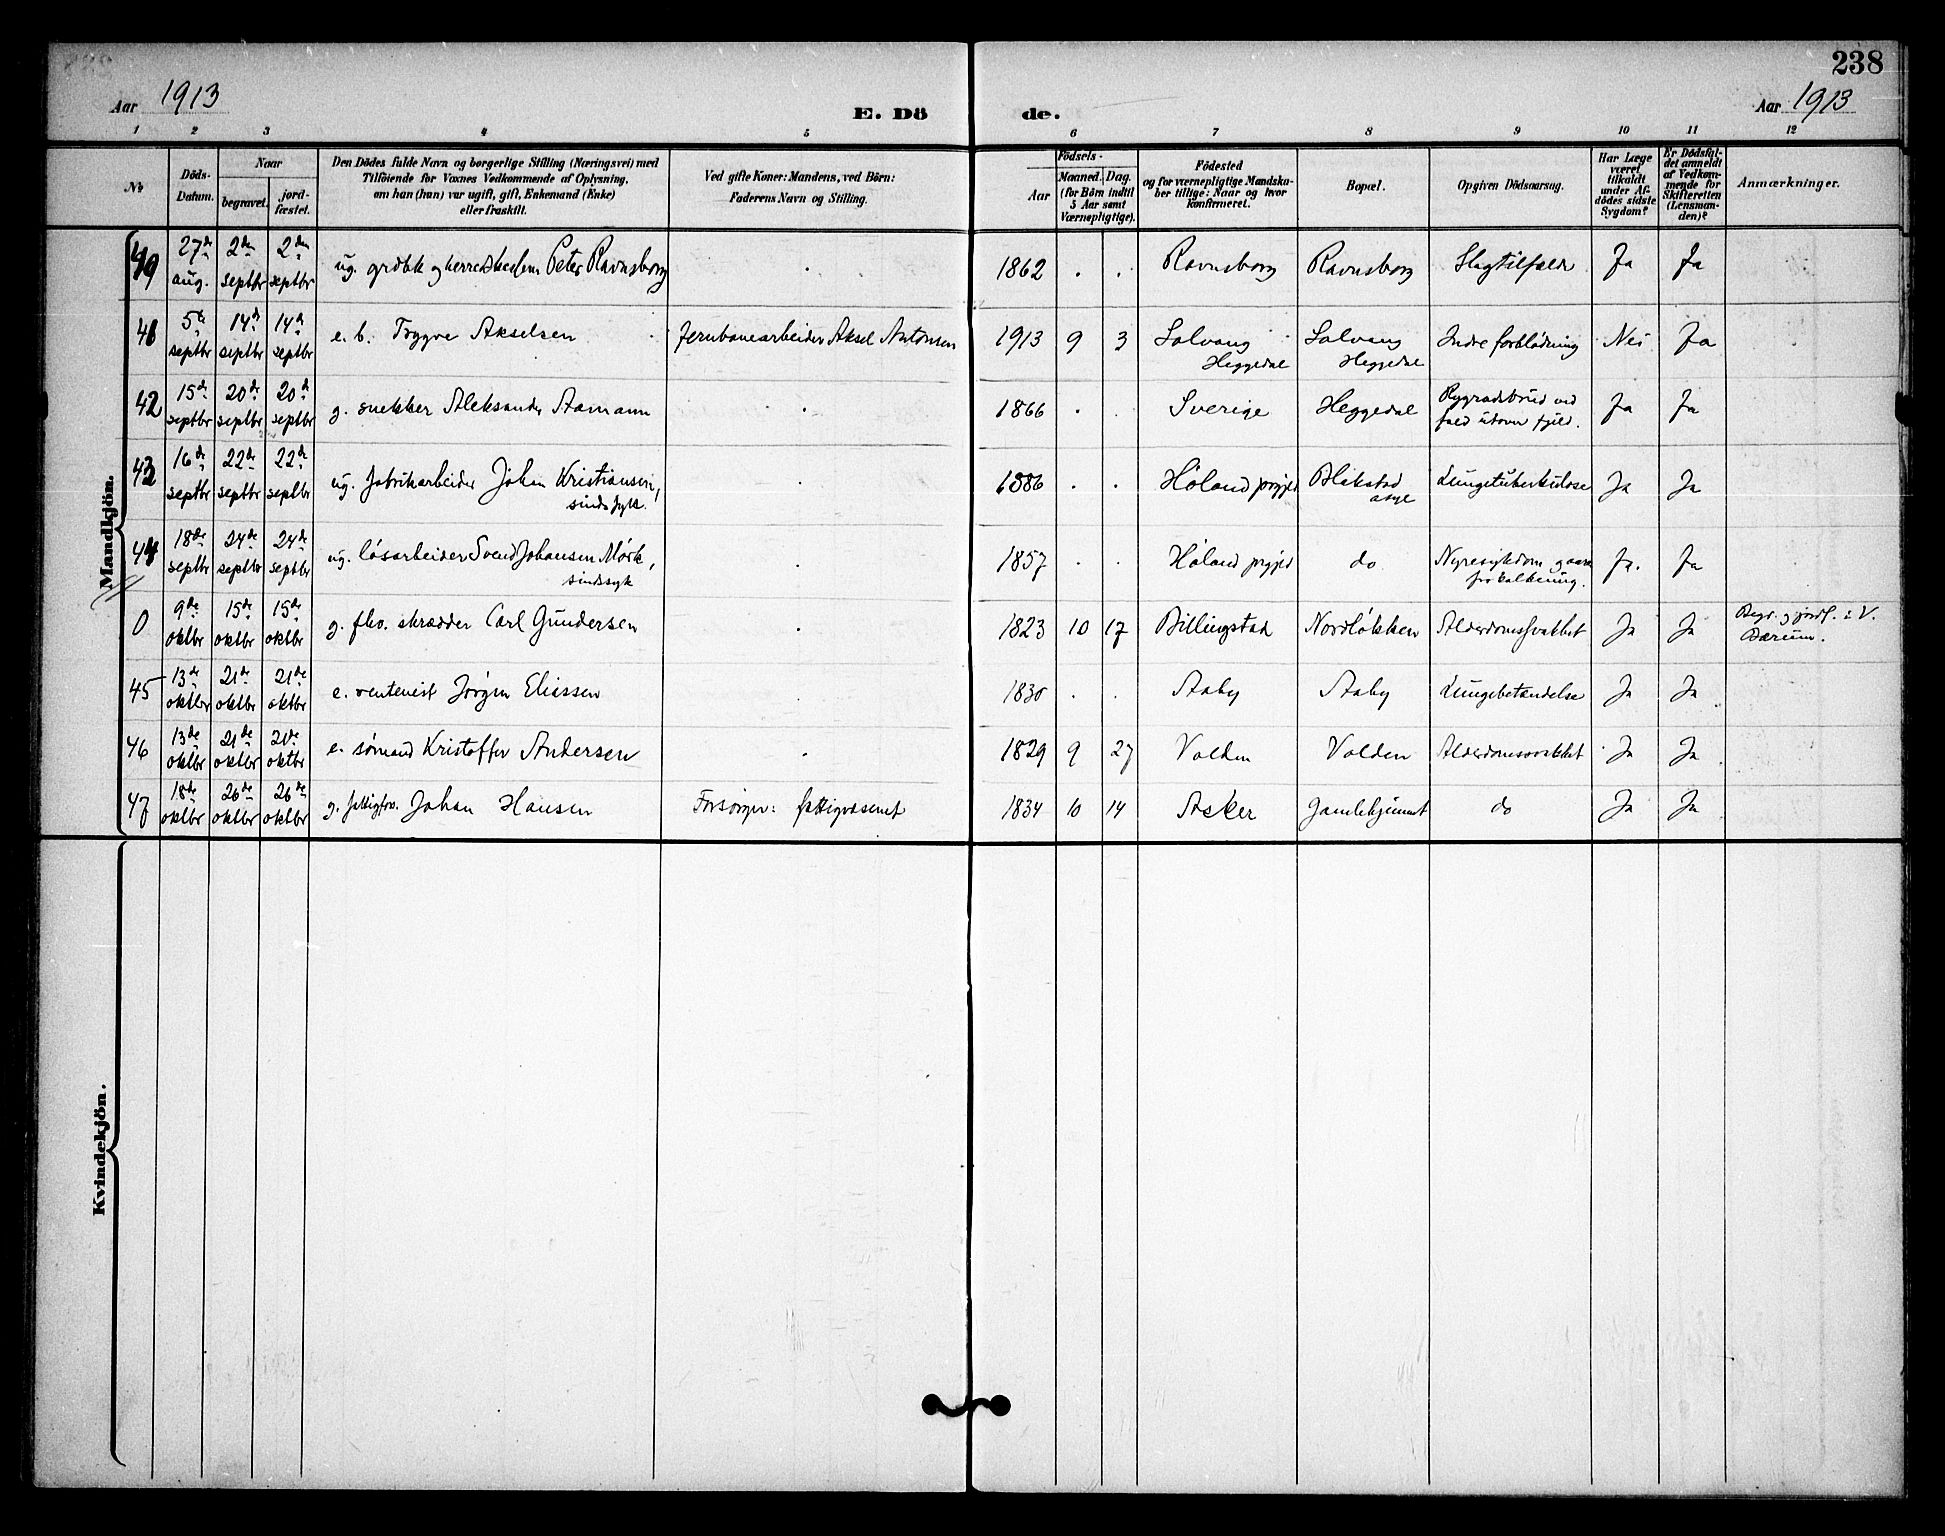 238
Aar 1913
E. Dö de.
Aar 1913
1 2 3 4 5 6 7 8 9 10 11 12
No
Döds-
Datum.
Naar
begravet.
jord-
fæstet.
Den Dödes fulde Navn og borgerlige Stilling (Næringsvei) med
Tilföiende for Voxnes Vedkommende af Oplysning,
om han (hun) var ugift, gift, Enkemand (Enke)
eller fraskilt.
Ved gifte Koner: Mandens, ved Börn:
Faderens Navn og Stilling.
Födsels-
Aar
Maaned. Dag.
(for Börn indtil
5 Aar samt
Værnepligtige).
Födested
og for værnepligtige Mandska-
ber tillige: Naar og hvor
konfirmeret.
Bopæl.
Opgiven Dödsaarsag.
Har Læge
været
tilkaldt
under Af-
dödes sidste
Sygdom?
Er Dödsfal-
det anmeldt
af Vedkom-
mende for
Skifteretten
(Lensman-
den)?
Anmærkninger.
Mandkjön.
27de aug. 2den septbr 2den septbr ug. Peter Ravnsborg 1862 . . Ravnsborg Ravnsborg Slagtilfælde Ja Ja
41 5te septbr 14de septbr 14de septbr e. b. Trygve Akselsen Jernbanearbeider Aksel Antonsen 1913 9 3 Solvang Heggedal Solvang Heggedal Indre forblødning Nei Ja
42 15de septbr 20de septbr 20de septbr g. snekker Aleksander Aamann 1866 . . Sverige Heggedal Rygradsbrud ved fald utover fjeld. Ja Ja
43 16de septbr 22de septbr 22de septbr ug. fabrikarbeider Johan Kristiansen, sindssyk. 1886 . . Høland prgjeld Blakstad asyl Lungetuberkulose Ja Ja
44 18de septbr 24de septbr 24de septbr ug. løsarbeider Svend Johansen Mørk, sindssyk 1857 . . Høland prgjeld do Nyresykdom og aareforkalkning. Ja. Ja
0 9de oktbr 15de oktbr 15de oktbr g. fhv. skrædder Carl Gundersen 1823 10 17 Billingstad Nordløkken Alderdomssvakhet Ja Ja Begr. og jordf. i V. Bærum.
45 13de oktbr 21de oktbr 21de oktbr e. rentenist Jørgen Eliassen 1830 . . Aaby Aaby Lungebetændelse Ja Ja
46 13de oktbr 21de oktbr 21de oktbr e. sømand Kristoffer Andersen 1829 9 27 Volden Volden Alderdomssvakhet Ja Ja
47 18de oktbr 26de oktbr 26de oktbr g. fattigfor. Johan Hansen Forsørger: fattigvæsenet 1834 10 14 Asker Gamlehjemmet do Ja Ja
Kvindekjön.